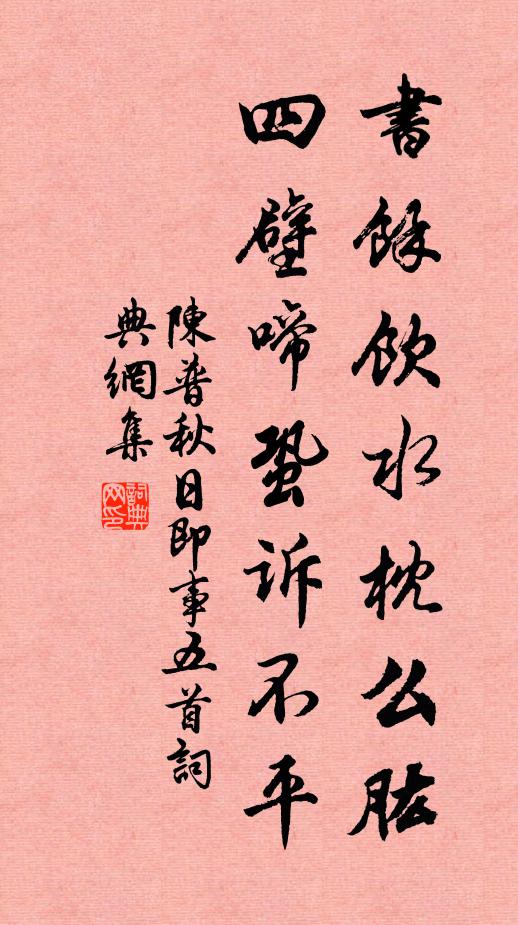 書餘飲水枕公肱
四壁啼蛩訴不平
陳普秋日即事五首詞
典網集
詞典
网印